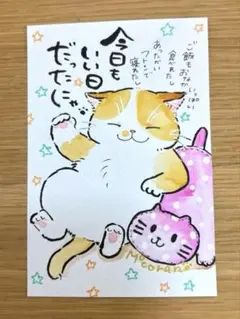 今日も
いい日
だったにゃ
ご飯もおなかいっぱい
食べれたし
あったかい
フトンで
寝れたし